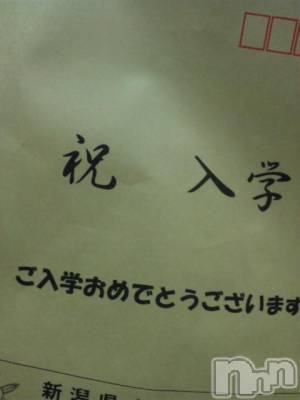 祝 入学
ご入学おめでとうございます
新潟県
nnn